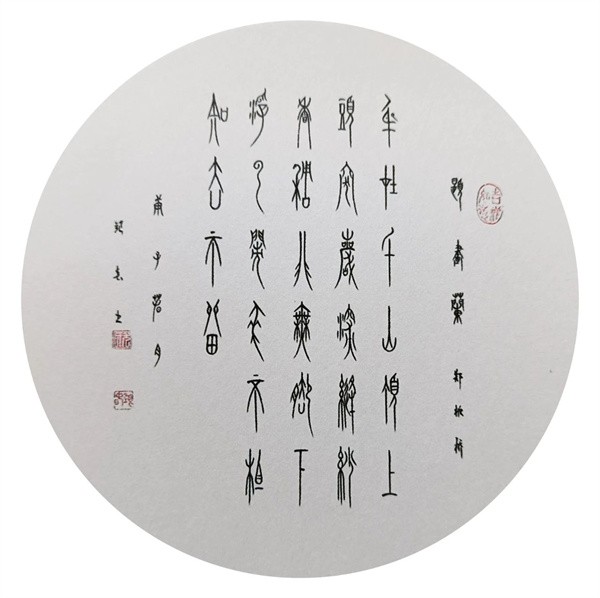 題畫蘭 鄭板橋
身在千山頂上
頭突巖深縫妙
香稠非無腳下
浮雲鬧來不相
知去不留
庚子 月